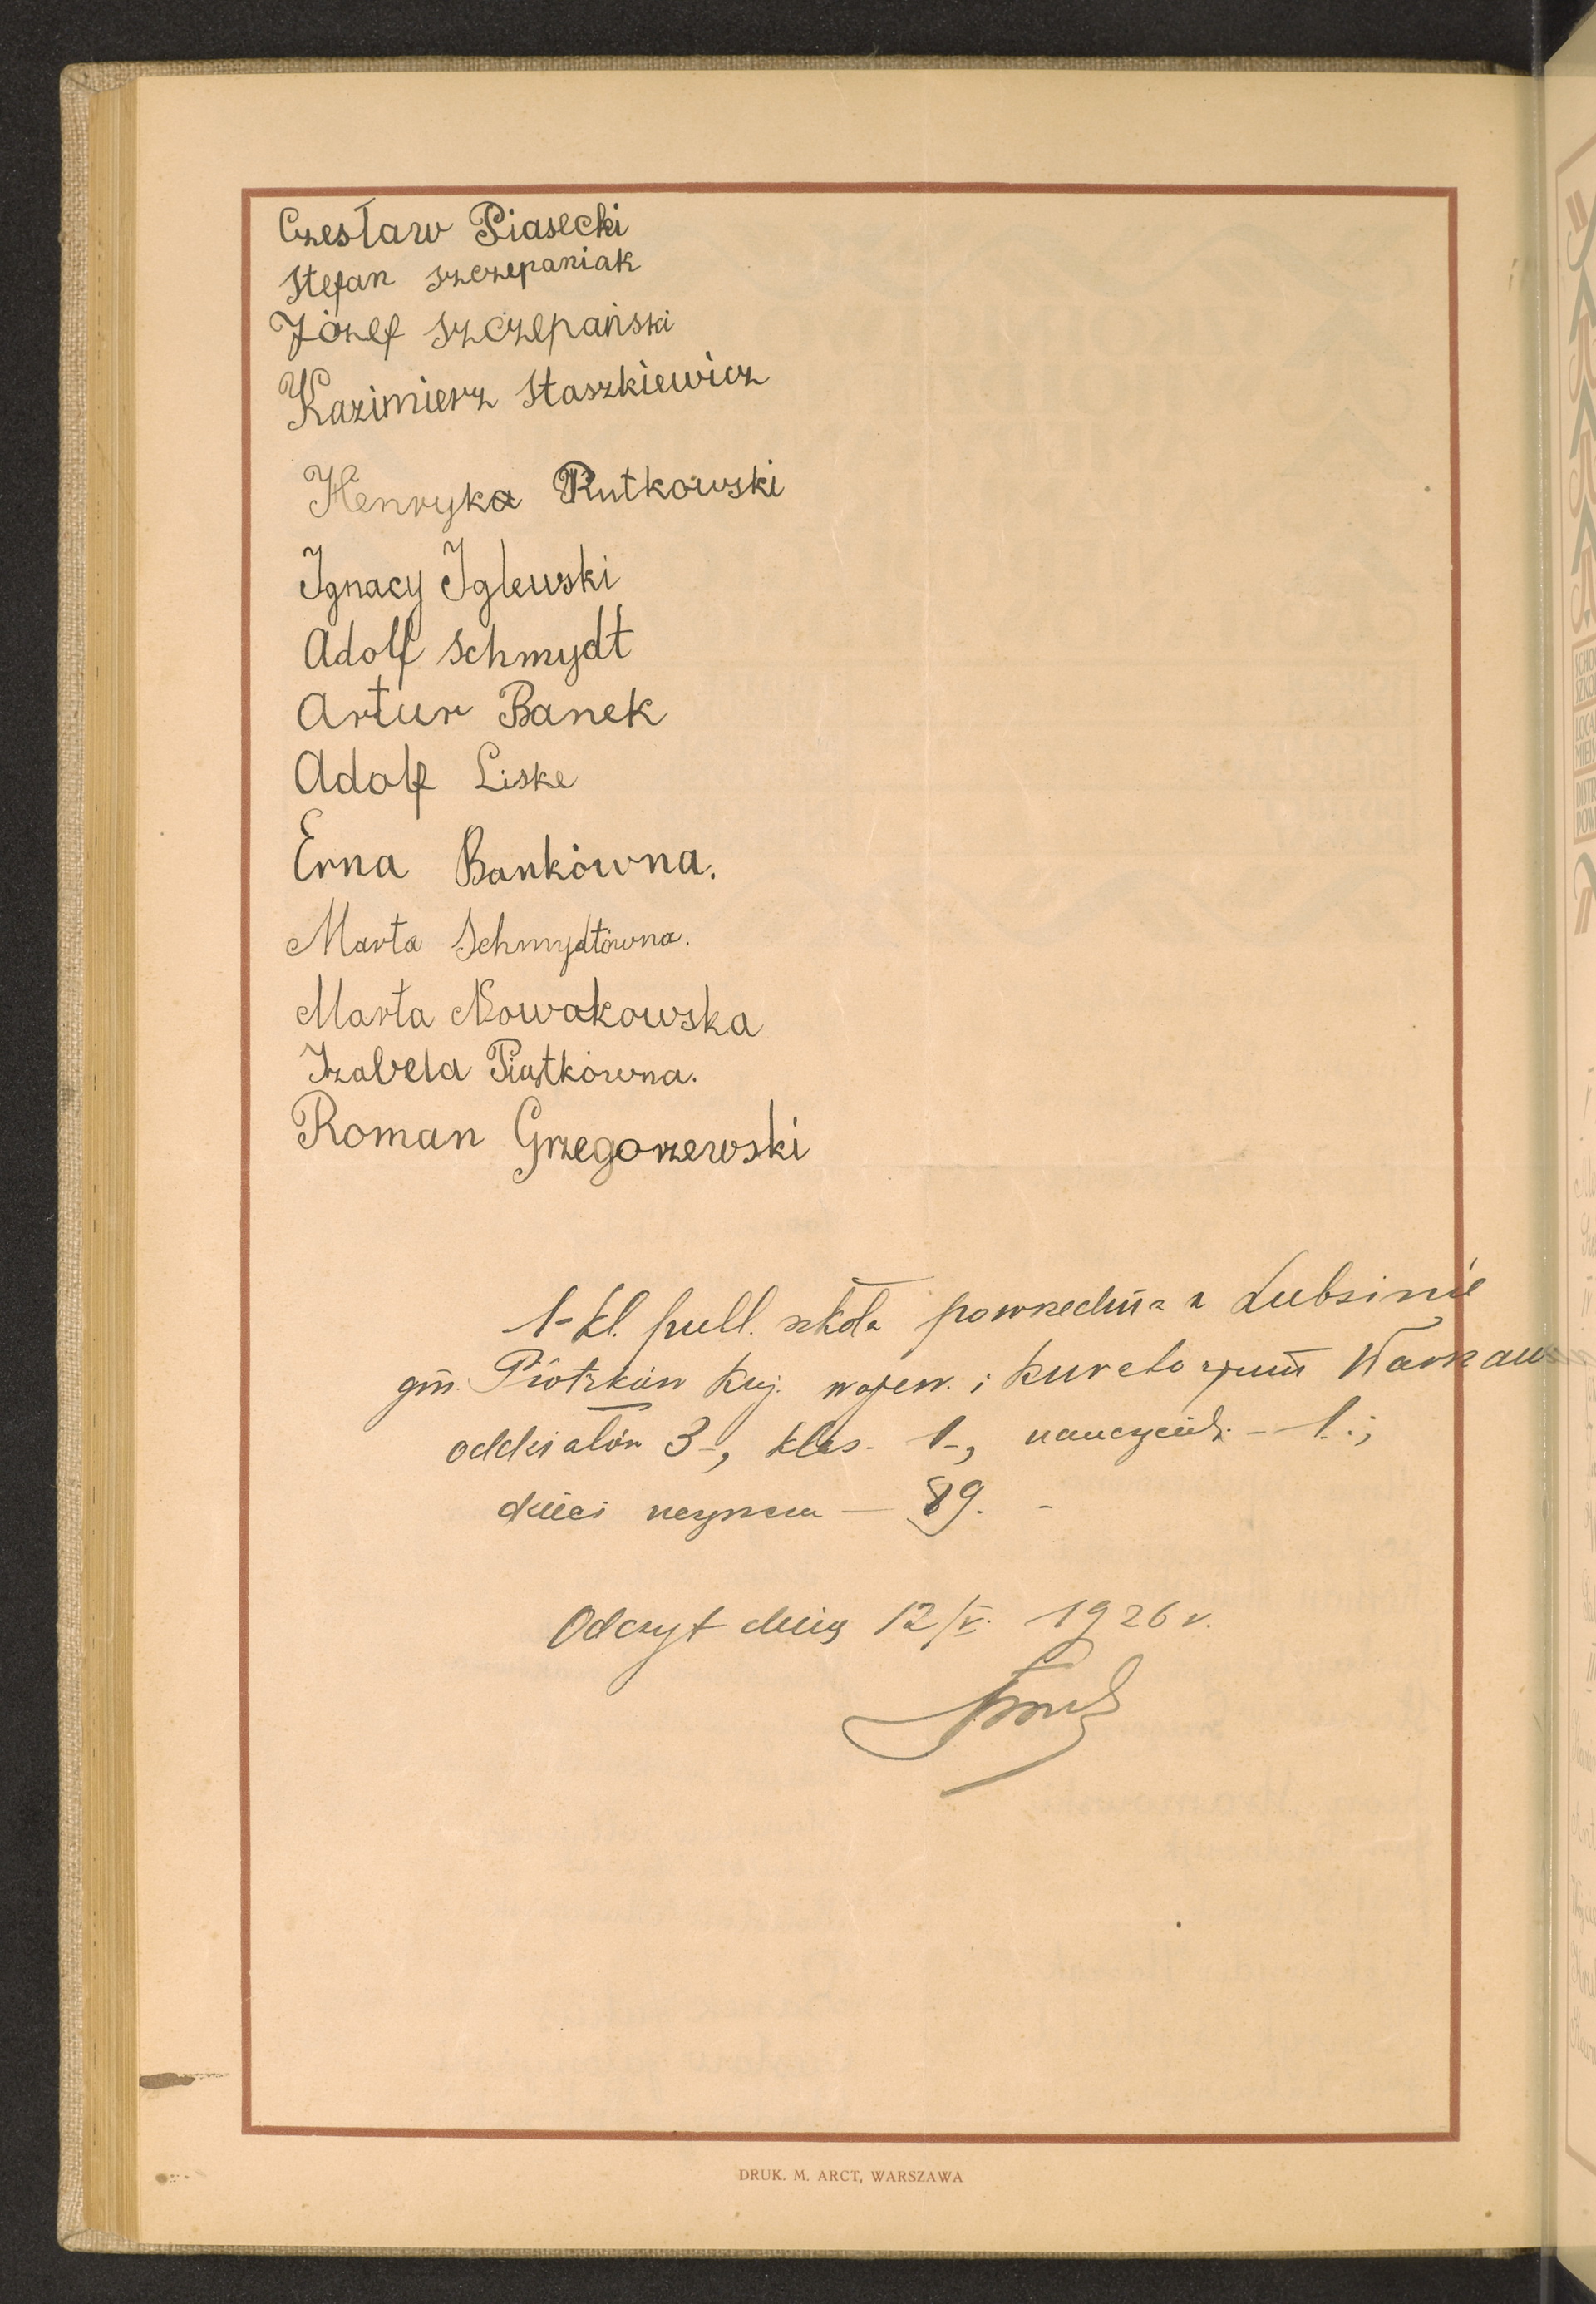 Czesław Piasecki
Stefan Szczepaniak
Józef Szczepański
Kazimierz Staszkiewicz
Henryka Rutkowski
Ignacy Iglewski
Adolf Schmydt
Artur Banek
Adolf Liske
Erna Bankówna.
Marta Schmydtówna.
Marta Nowakowska
Izabela Piątkówna.
Roman Grzegorzewski
1-kl. publ. szkoła powszechna w Lubsinie
gm. Piotrków Kuj. wojew. i kuratorjum Warszaws
oddziałów 3-, klas- 1-, nauczyciel. - 1.;
dzieci uczęszcza — 89. -
Odczyt dnia 12/V. 1926 r.
DRUK. M. ARCT, WARSZAWA